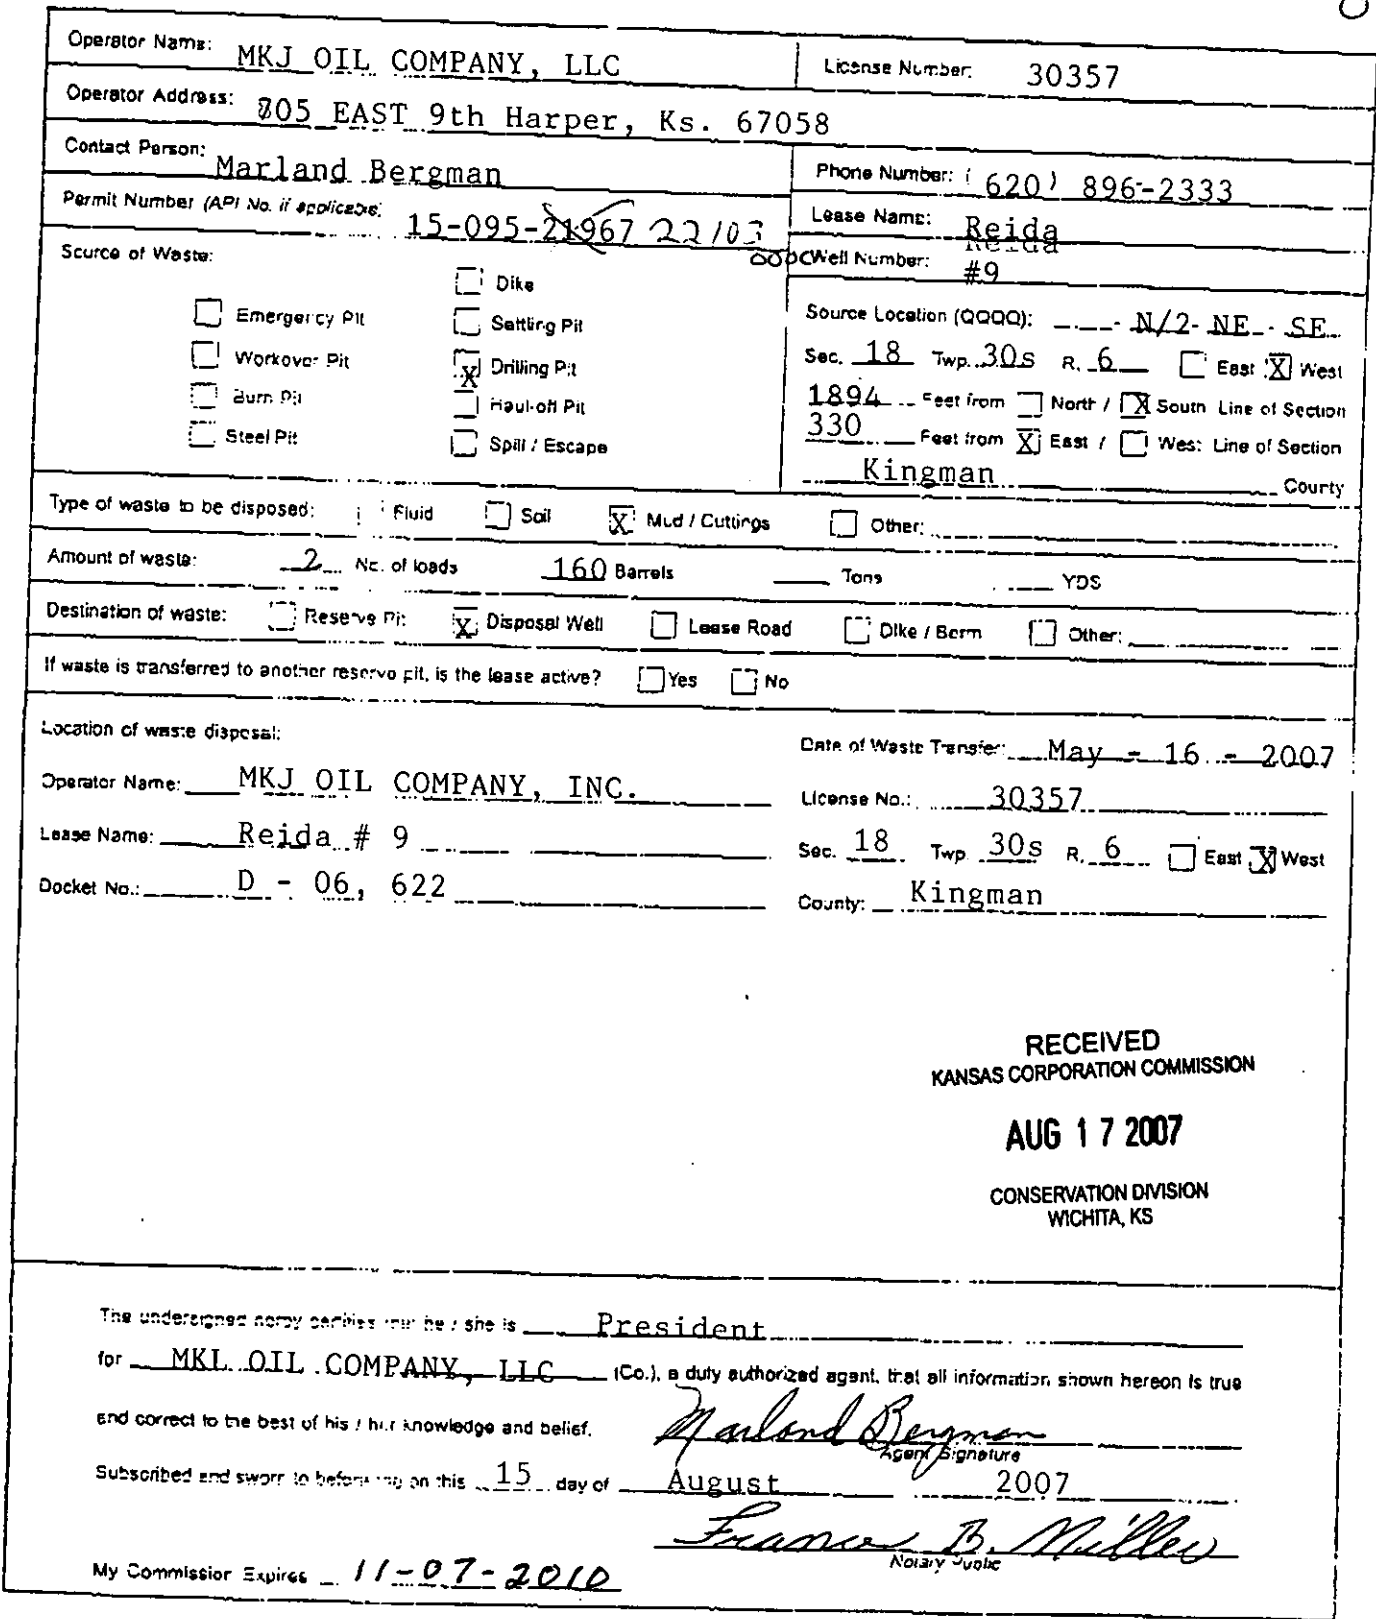 Operator Name: MKJ OIL COMPANY, LLC License Number: 30357
Operator Address: 805 EAST 9th Harper, Ks. 67058
Contact Person: Marland Bergman Phone Number: ( 620) 896-2333
Permit Number (API No. if applicable) 15-095-21967 22103 0000 Lease Name: Reida
Source of Waste: Well Number: #9
Dike
Emergency Pit Settling Pit Source Location (QQQQ): - N/2- NE - SE
Workover Pit X Drilling Pit Sec. 18 Twp. 30s R. 6 East X West
Burn Pit Haul-off Pit 1894 Feet from North / X South Line of Section
Steel Pit Spill / Escape 330 Feet from X East / West Line of Section
Kingman County
Type of waste to be disposed: Fluid Soil X Mud / Cuttings Other:
Amount of waste: 2 No. of loads 160 Barrels Tons YDS
Destination of waste: Reserve Pit X Disposal Well Lease Road Dike / Berm Other:
If waste is transferred to another reserve pit, is the lease active? Yes No
Location of waste disposal: Date of Waste Transfer: May - 16 - 2007
Operator Name: MKJ OIL COMPANY, INC. License No.: 30357
Lease Name: Reida # 9 Sec. 18 Twp. 30s R. 6 East X West
Docket No.: D - 06, 622 County: Kingman
RECEIVED
KANSAS CORPORATION COMMISSION
AUG 17 2007
CONSERVATION DIVISION
WICHITA, KS
The undersigned hereby certifies that he / she is President
for MKL OIL COMPANY, LLC (Co.), a duty authorized agent, that all information shown hereon is true
and correct to the best of his / her knowledge and belief. Marland Bergman
Agent Signature
Subscribed and sworn to before me on this 15 day of August 2007
B. Miller
Notary Public
My Commission Expires 11-07-2010